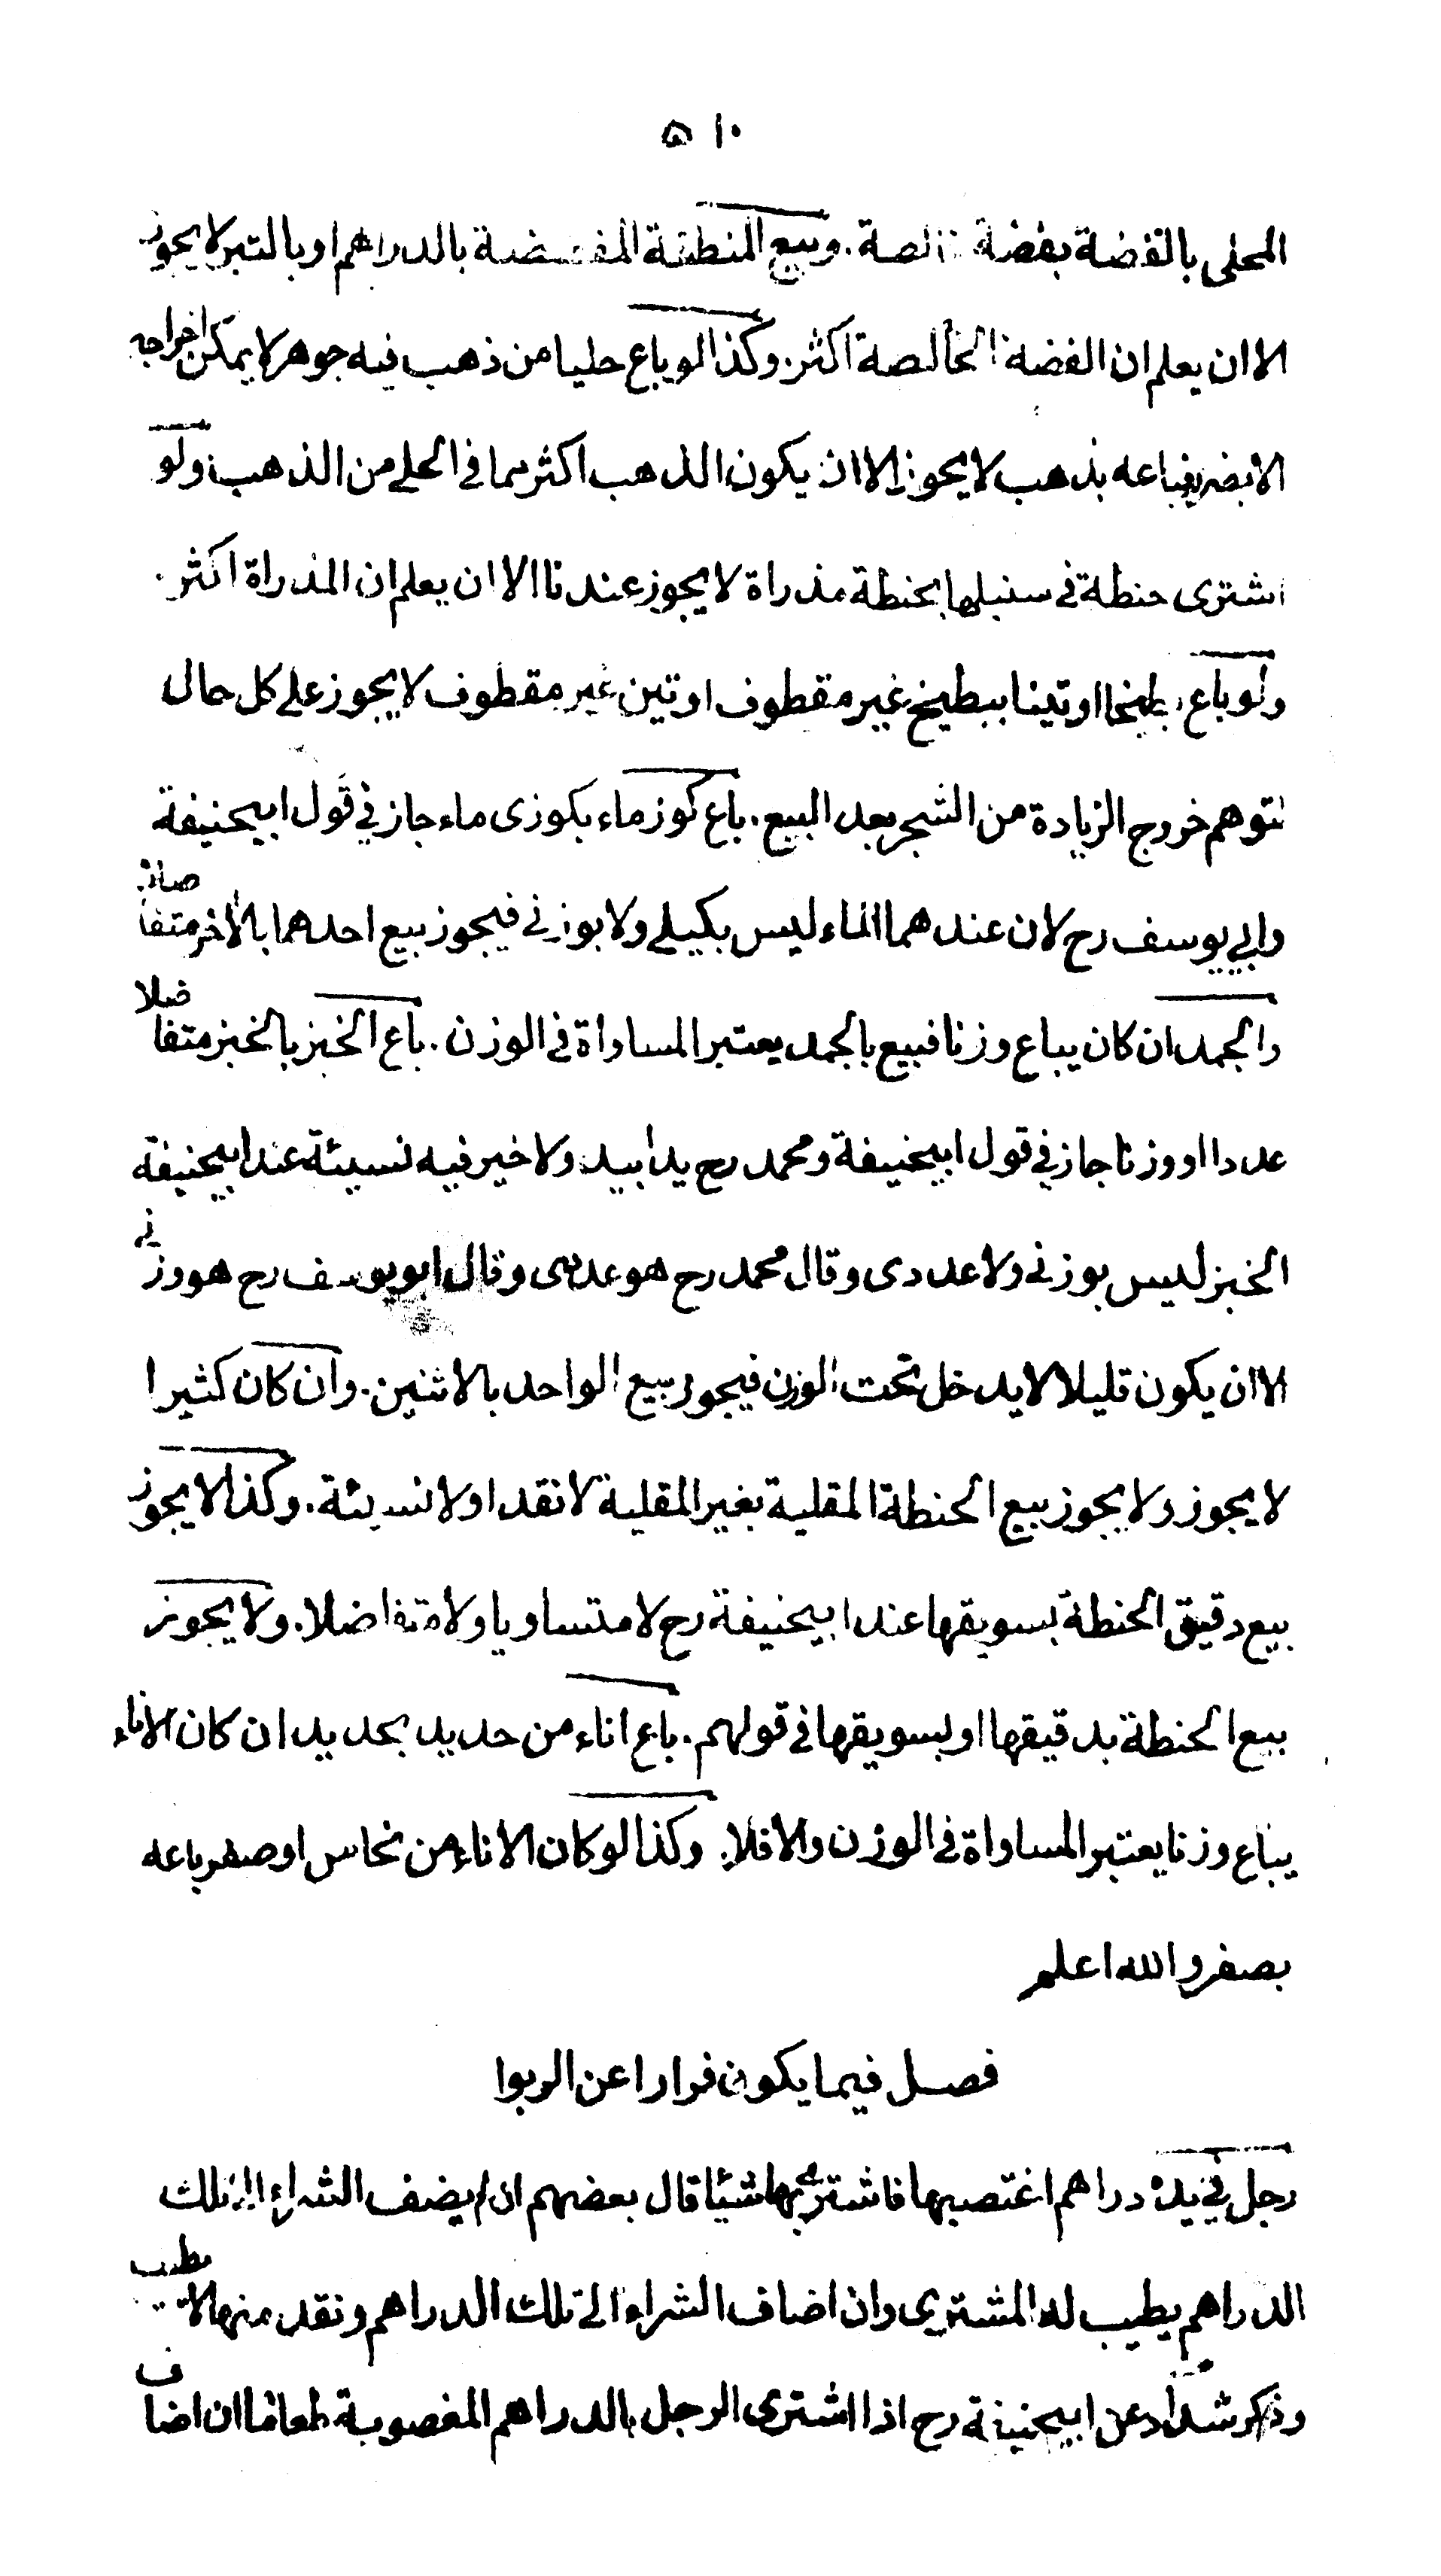 ٥١٠
المحلى بالفضة بفضة خالصة. وبيع المنطقة المفضضة بالدراهم او بالتبر لا يجوز
الا ان يعلم ان الفضة الخالصة اكثر. وكذا لو باع حليا من ذهب فيه جوهر لا يمكن اخراجه
الا بضرر فباعه بذهب لا يجوز الا ان يكون الذهب اكثر مما فى الحلى من الذهب ولو
اشترى حنطة فى سنبلها بحنطة مذراة لا يجوز عندنا الا ان يعلم ان المذراة اكثر.
ولو باع بطيخا او تينا ببطيخ غير مقطوف او تين غير مقطوف لا يجوز على كل حال
لتوهم خروج الزيادة من الشجر بعد البيع. باع كوز ماء بكوزى ماء جاز في قول ابيحنيفة
وابي يوسف رح لان عندهما الماء ليس بكيلي ولا بوزني فيجوز بيع احدهما بالآخر متفاضلا
والجمد ان كان يباع وزنا فبيع بالجمد يعتبر المساواة فى الوزن. باع الخبز بالخبز متفاضلا
عددا او وزنا جاز في قول ابيحنيفة ومحمد رح يدا بيد ولا خير فيه نسيئة عند ابيحنيفة
الخبز ليس بوزني ولا عددى وقال محمد رح هو عددى وقال ابو يوسف رح هو وزني
الا ان يكون قليلا لا يدخل تحت الوزن فيجوز بيع الواحد بالاثنين. وان كان كثيرا
لا يجوز ولا يجوز بيع الحنطة المقلية بغير المقلية لا نقدا ولا نسيئة. وكذا لا يجوز
بيع دقيق الحنطة بسويقها عند ابيحنيفة رح لا متساويا ولا متفاضلا. ولا يجوز
بيع الحنطة بدقيقها او بسويقها فى قولهم. باع اناء من حديد بحديد ان كان الاناء
يباع وزنا يعتبر المساواة فى الوزن والا فلا. وكذا لو كان الاناء من نحاس او صفر باعه
بصفر والله اعلم
فصل فيما يكون فرارا عن الربوا
رجل في يده دراهم اغتصبها فاشترى بها شيئا قال بعضهم ان لم يضف الشراء الى تلك
الدراهم يطيب له المشترى وان اضاف الشراء الى تلك الدراهم ونقد منها لا يطيب
وذكر شداد عن ابيحنيفة رح اذا اشترى الرجل بالدراهم المغصوبة طعاما ان اضاف